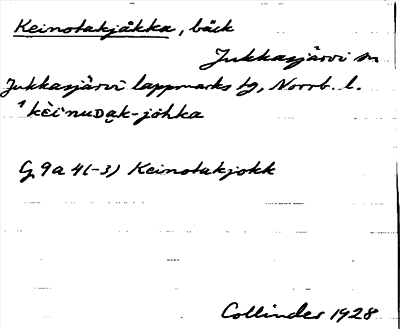 Keinotakjåkka, bäck
Jukkasjärvi sn
Jukkasjärvi lappmarks tg, Norrb. l.
ˈkèi̯nuᴅa̮k-jo̊hka
G 9a 4(-3) Keinotakjokk
Collinder 1928